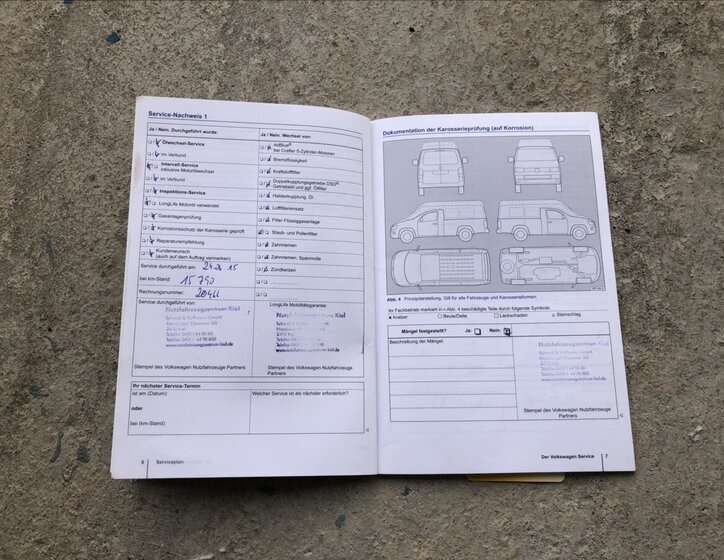 Service-Nachweis 1
Ja / Nein. Durchgeführt wurde:
Ölwechsel-Service
im Verbund
Intervall-Service
inklusive Motorölwechsel
im Verbund
Inspektions-Service
LongLife Motoröl verwendet
Gasanlagenprüfung
Korrosionsschutz der Karosserie geprüft
Reparaturempfehlung
Kundenwunsch
(auch auf dem Auftrag vermerken)
Service durchgeführt am: 24.06.15
bei km-Stand: 15 790
Rechnungsnummer: 20466
Service durchgeführt von:
Nutzfahrzeugzentrum Kiel
Schmidt & Hoffmann GmbH
Hamburger Chaussee
24113 Kiel
www.nutzfahrzeugzentrum-kiel.de
Stempel des Volkswagen Nutzfahrzeuge Partners
Ja / Nein. Wechsel von:
AdBlue®
bei Crafter 5-Zylinder-Motoren
Bremsflüssigkeit
Kraftstofffilter
Doppelkupplungsgetriebe DSG®
Getriebeöl und ggf. Ölfilter
Haldexkupplung Öl
Luftfiltereinsatz
Filter Flüssiggasanlage
Staub- und Pollenfilter
Zahnriemen
Zahnriemen Spannrolle
Zündkerzen
LongLife Mobilitätsgarantie:
Nutzfahrzeugzentrum Kiel
www.nutzfahrzeugzentrum-kiel.de
Stempel des Volkswagen Nutzfahrzeuge
Partners
Ihr nächster Service-Termin
ist am (Datum):
oder
bei (km-Stand):
Welcher Service ist als nächster erforderlich?
6 Serviceplan
Dokumentation der Karosserieprüfung (auf Korrosion)
Abb. 4 Prinzipdarstellung. Gilt für alle Fahrzeuge und Karosserieformen.
Ihr Fachbetrieb markiert in Abb. 4 beschädigte Teile durch folgende Symbole:
Kratzer Beule/Delle Lackschäden Steinschlag
Mängel festgestellt? Ja: Nein:
Beschreibung der Mängel:
Nutzfahrzeugzentrum Kiel
Schmidt & Hoffmann GmbH
www.nutzfahrzeugzentrum-kiel.de
Stempel des Volkswagen Nutzfahrzeuge
Partners
Der Volkswagen Service 7